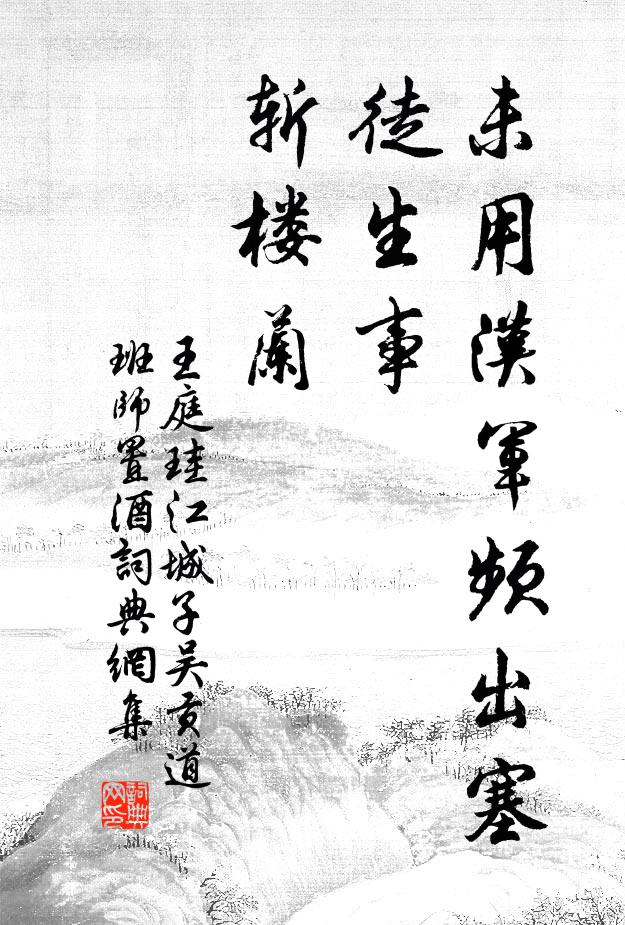 未用漢軍頻出塞
徒生事
斬楼蘭
王庭珪江城子吴贡道
班師置酒詞典網集
詞典网印